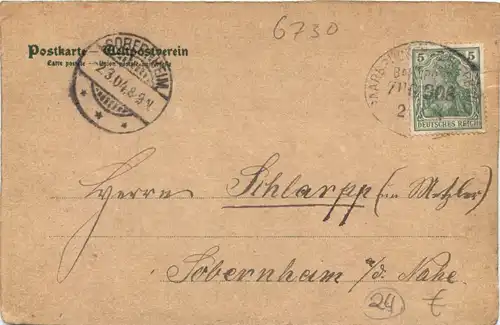 6730
Postkarte — Weltpostverein
Carte postale — Union postale universelle
SOBERNHEIM
2.3.04. 8-9 V.
5 5
DEUTSCHES REICH
Herrn Schlarpp (in Metzler)
Sobernham a/d. Nahe
24 €